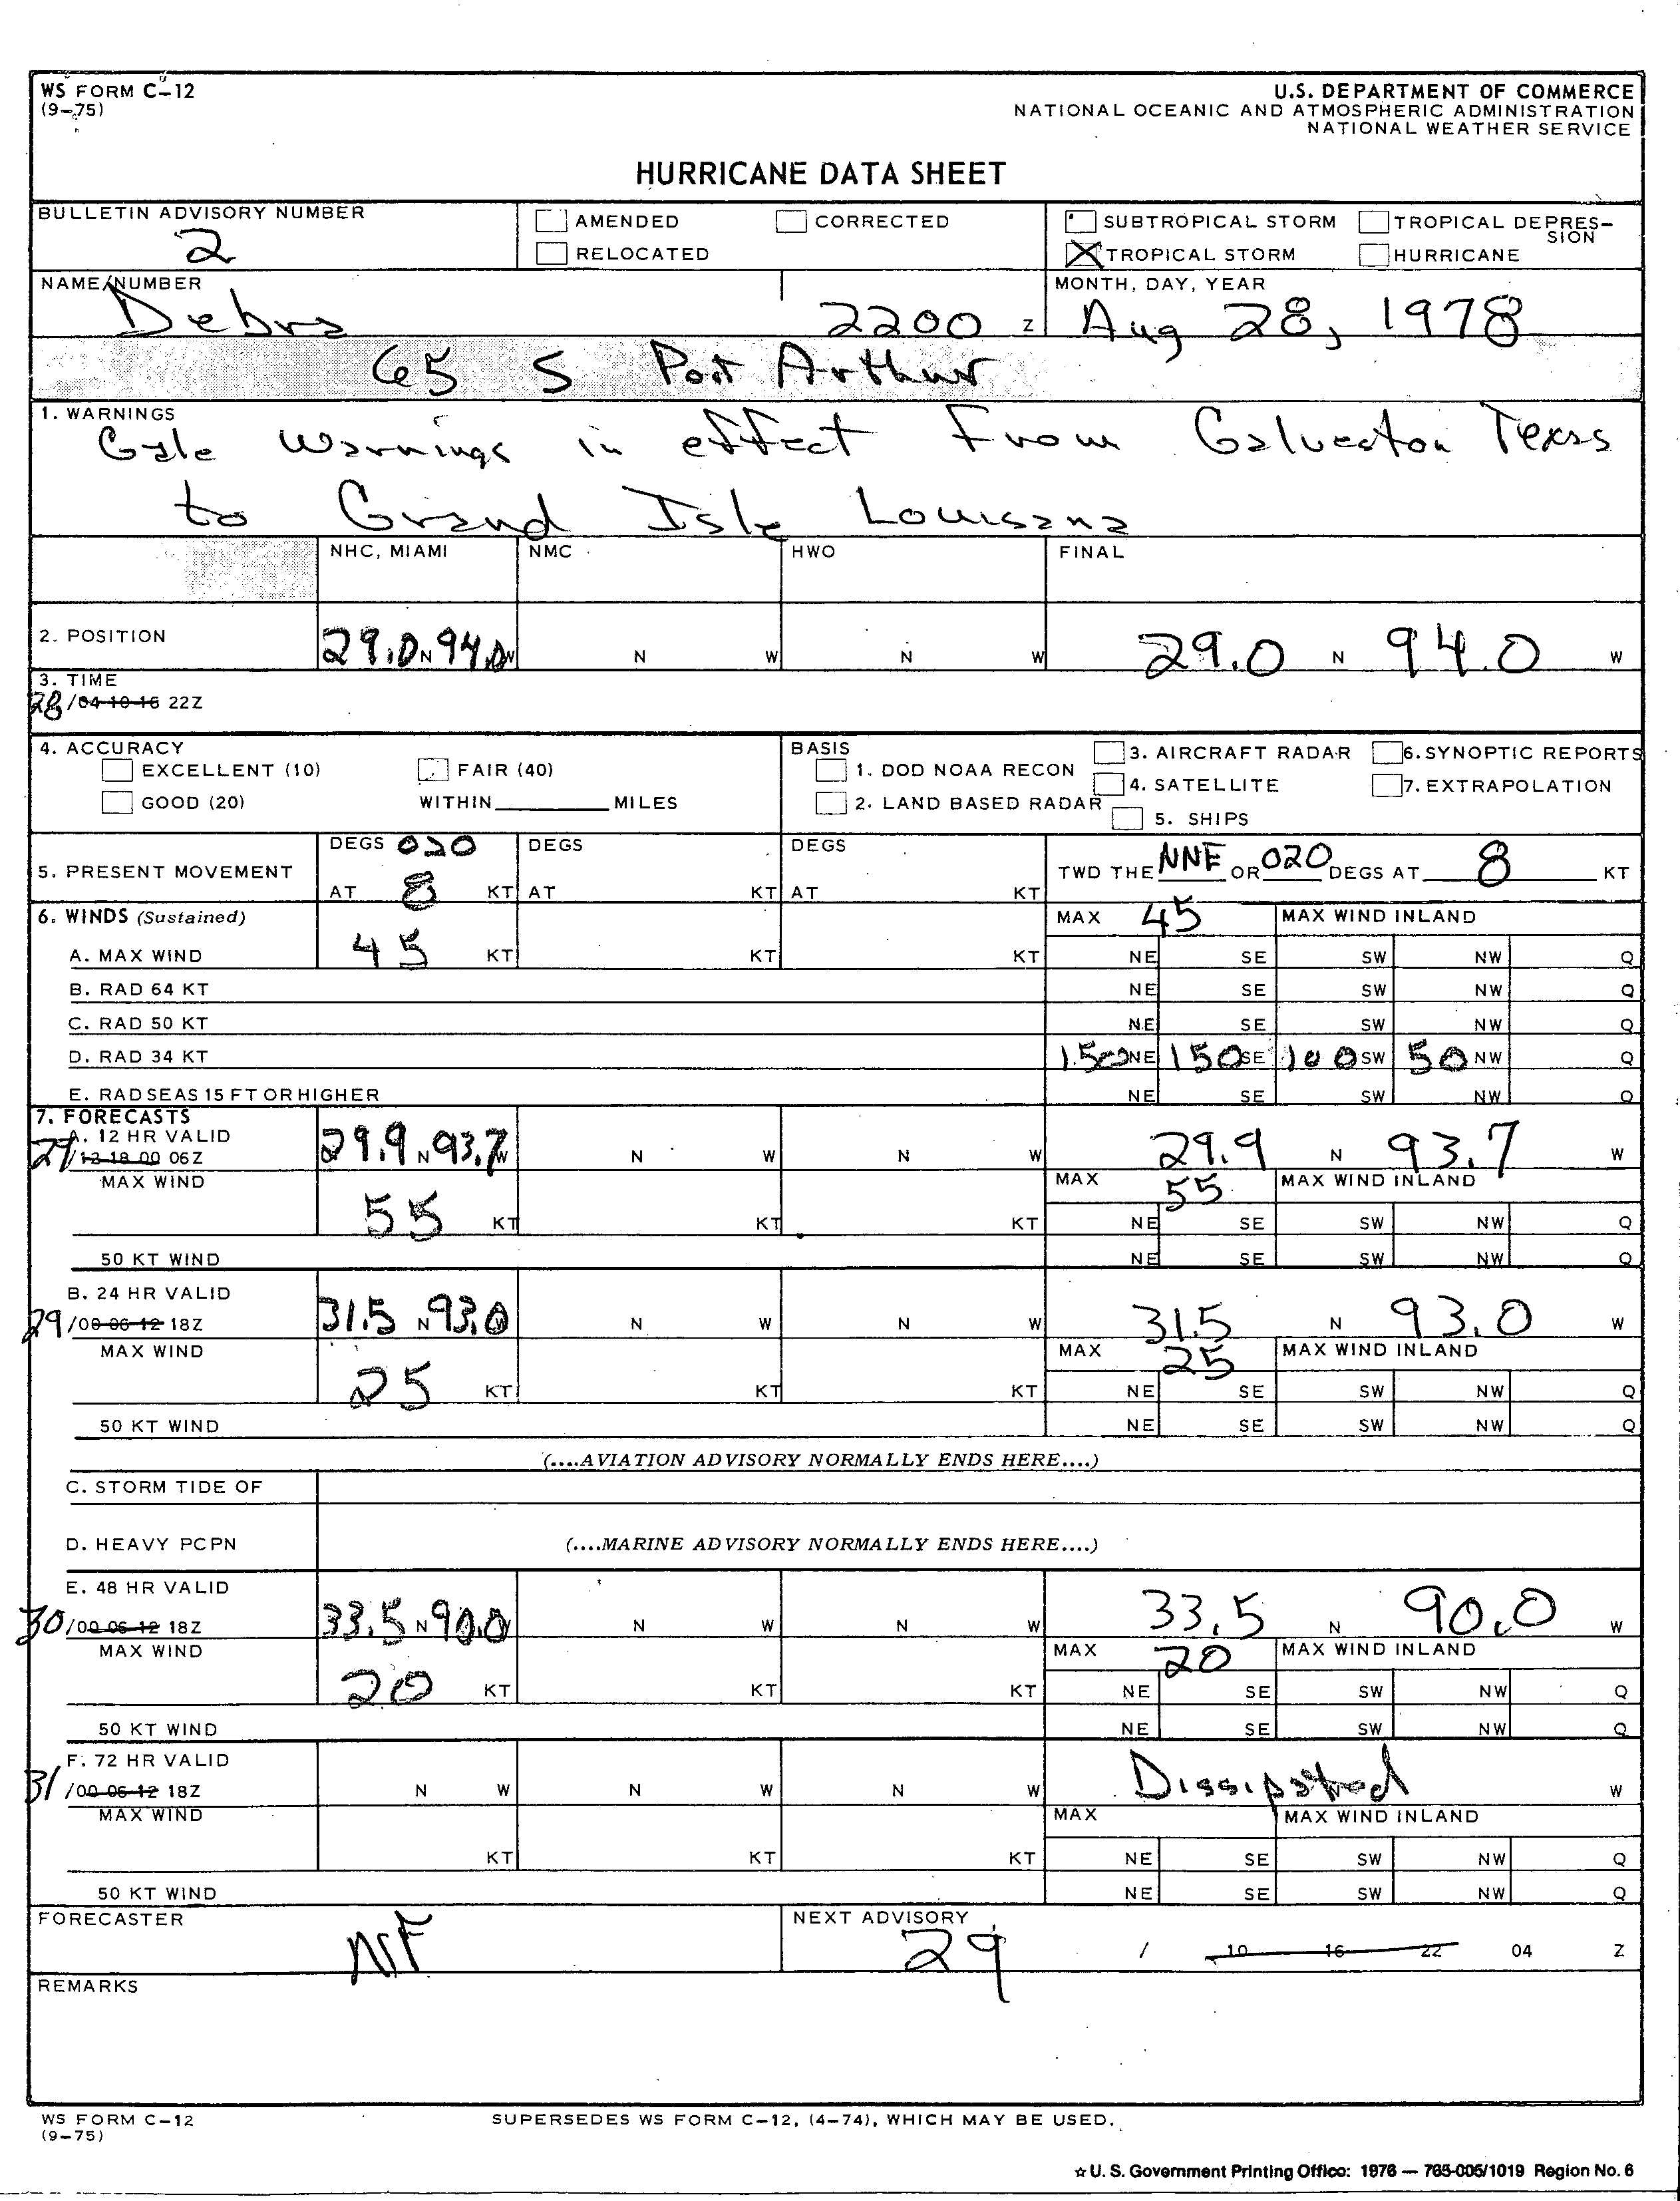 WS FORM C-12
(9-75)
U.S. DEPARTMENT OF COMMERCE
NATIONAL OCEANIC AND ATMOSPHERIC ADMINISTRATION
NATIONAL WEATHER SERVICE
HURRICANE DATA SHEET
BULLETIN ADVISORY NUMBER
2
AMENDED CORRECTED
RELOCATED
SUBTROPICAL STORM TROPICAL DEPRES-
SION
TROPICAL STORM HURRICANE
NAME/NUMBER
Debra
2200 Z
MONTH, DAY, YEAR
Aug 28, 1978
65 S Port Arthur
1. WARNINGS
Gale warnings in effect from Galveston Texas
to Grand Isle Louisana
NHC, MIAMI NMC HWO FINAL
2. POSITION 29.0 N 94.0 W N W N W 29.0 N 94.0 W
3. TIME
28/04 10 16 22Z
4. ACCURACY
EXCELLENT (10) FAIR (40)
GOOD (20) WITHIN MILES
BASIS
1. DOD NOAA RECON
2. LAND BASED RADAR
3. AIRCRAFT RADAR 6. SYNOPTIC REPORTS
4. SATELLITE 7. EXTRAPOLATION
5. SHIPS
5. PRESENT MOVEMENT
DEGS 020 DEGS DEGS
AT 8 KT AT KT AT KT
TWD THE NNE OR 020 DEGS AT 8 KT
6. WINDS (Sustained)
MAX 45 MAX WIND INLAND
A. MAX WIND 45 KT KT KT NE SE SW NW Q
B. RAD 64 KT NE SE SW NW Q
C. RAD 50 KT NE SE SW NW Q
D. RAD 34 KT 150 NE 150 SE 100 SW 50 NW Q
E. RAD SEAS 15 FT OR HIGHER NE SE SW NW Q
7. FORECASTS
A. 12 HR VALID
29/12 18 00 06Z 29.9 N 93.7 W N W N W 29.9 N 93.7 W
MAX WIND MAX 55 MAX WIND INLAND
55 KT KT KT NE SE SW NW Q
50 KT WIND NE SE SW NW Q
B. 24 HR VALID
29/00 06 12 18Z 31.5 N 93.0 W N W N W 31.5 N 93.0 W
MAX WIND MAX 25 MAX WIND INLAND
25 KT KT KT NE SE SW NW Q
50 KT WIND NE SE SW NW Q
(....AVIATION ADVISORY NORMALLY ENDS HERE....)
C. STORM TIDE OF
D. HEAVY PCPN (....MARINE ADVISORY NORMALLY ENDS HERE....)
E. 48 HR VALID
30/00 06 12 18Z 33.5 N 90.0 W N W N W 33.5 N 90.0 W
MAX WIND MAX 20 MAX WIND INLAND
20 KT KT KT NE SE SW NW Q
50 KT WIND NE SE SW NW Q
F. 72 HR VALID
31/00 06 12 18Z N W N W N W Dissipated W
MAX WIND MAX MAX WIND INLAND
KT KT KT NE SE SW NW Q
50 KT WIND NE SE SW NW Q
FORECASTER
NEXT ADVISORY
29 / 10 16 22 04 Z
REMARKS
WS FORM C-12
(9-75)
SUPERSEDES WS FORM C-12, (4-74), WHICH MAY BE USED.
☆ U. S. Government Printing Office: 1976 — 765-005/1019 Region No. 6